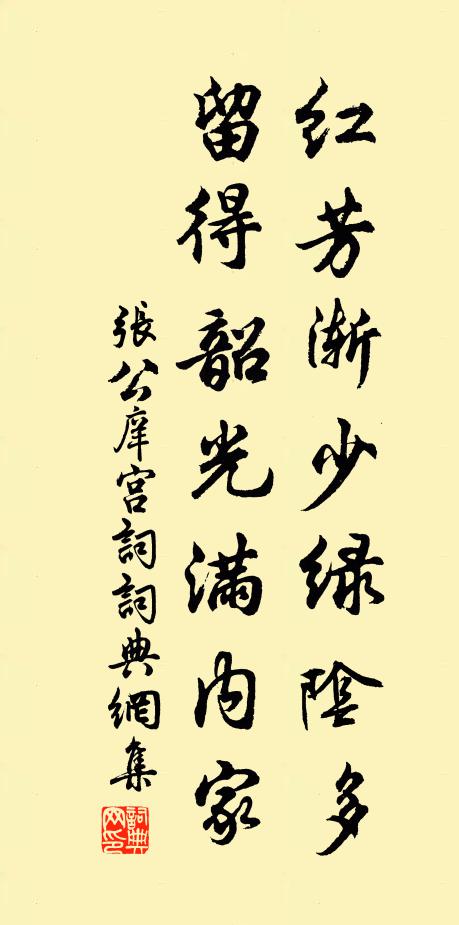 红芳渐少绿阴多
留得韶光满内家
張公庠宫詞詞典網集
詞典网印